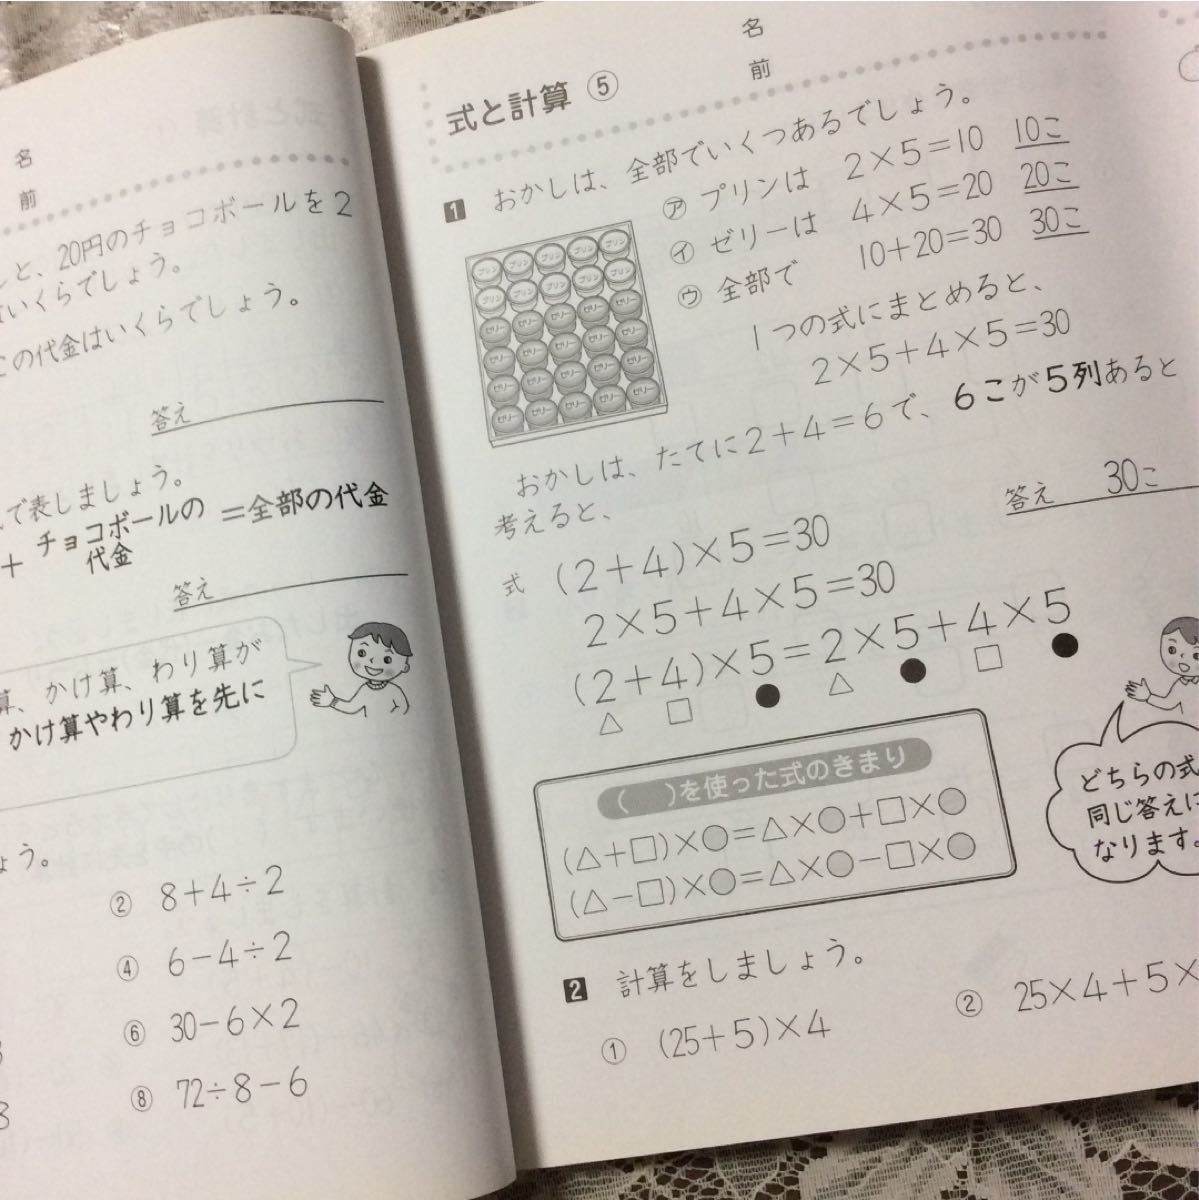 名
前
ンと、20円のチョコボールを2
はいくらでしょう。
この代金はいくらでしょう。
答え
で表しましょう。
+ チョコボールの代金 =全部の代金
答え
算、かけ算、わり算が
かけ算やわり算を先に
ょう。
② 8+4÷2
④ 6-4÷2
⑥ 30-6×2
⑧ 72÷8-6
名
前
式と計算 ⑤
1 おかしは、全部でいくつあるでしょう。
プリン プリン プリン プリン プリン
プリン プリン プリン プリン プリン
ゼリー ゼリー ゼリー ゼリー ゼリー
ゼリー ゼリー ゼリー ゼリー ゼリー
ゼリー ゼリー ゼリー ゼリー ゼリー
ゼリー ゼリー ゼリー ゼリー ゼリー
㋐ プリンは 2×5=10 10こ
㋑ ゼリーは 4×5=20 20こ
㋒ 全部で 10+20=30 30こ
1つの式にまとめると、
2×5+4×5=30
おかしは、たてに2+4=6で、6こが5列あると
考えると、
答え 30こ
式 (2+4)×5=30
2×5+4×5=30
(2+4)×5=2×5+4×5
△ □ ● △ ● □ ●
( )を使った式のきまり
(△+□)×○=△×○+□×○
(△-□)×○=△×○-□×○
どちらの式
同じ答えに
なります。
2 計算をしましょう。
① (25+5)×4
② 25×4+5×